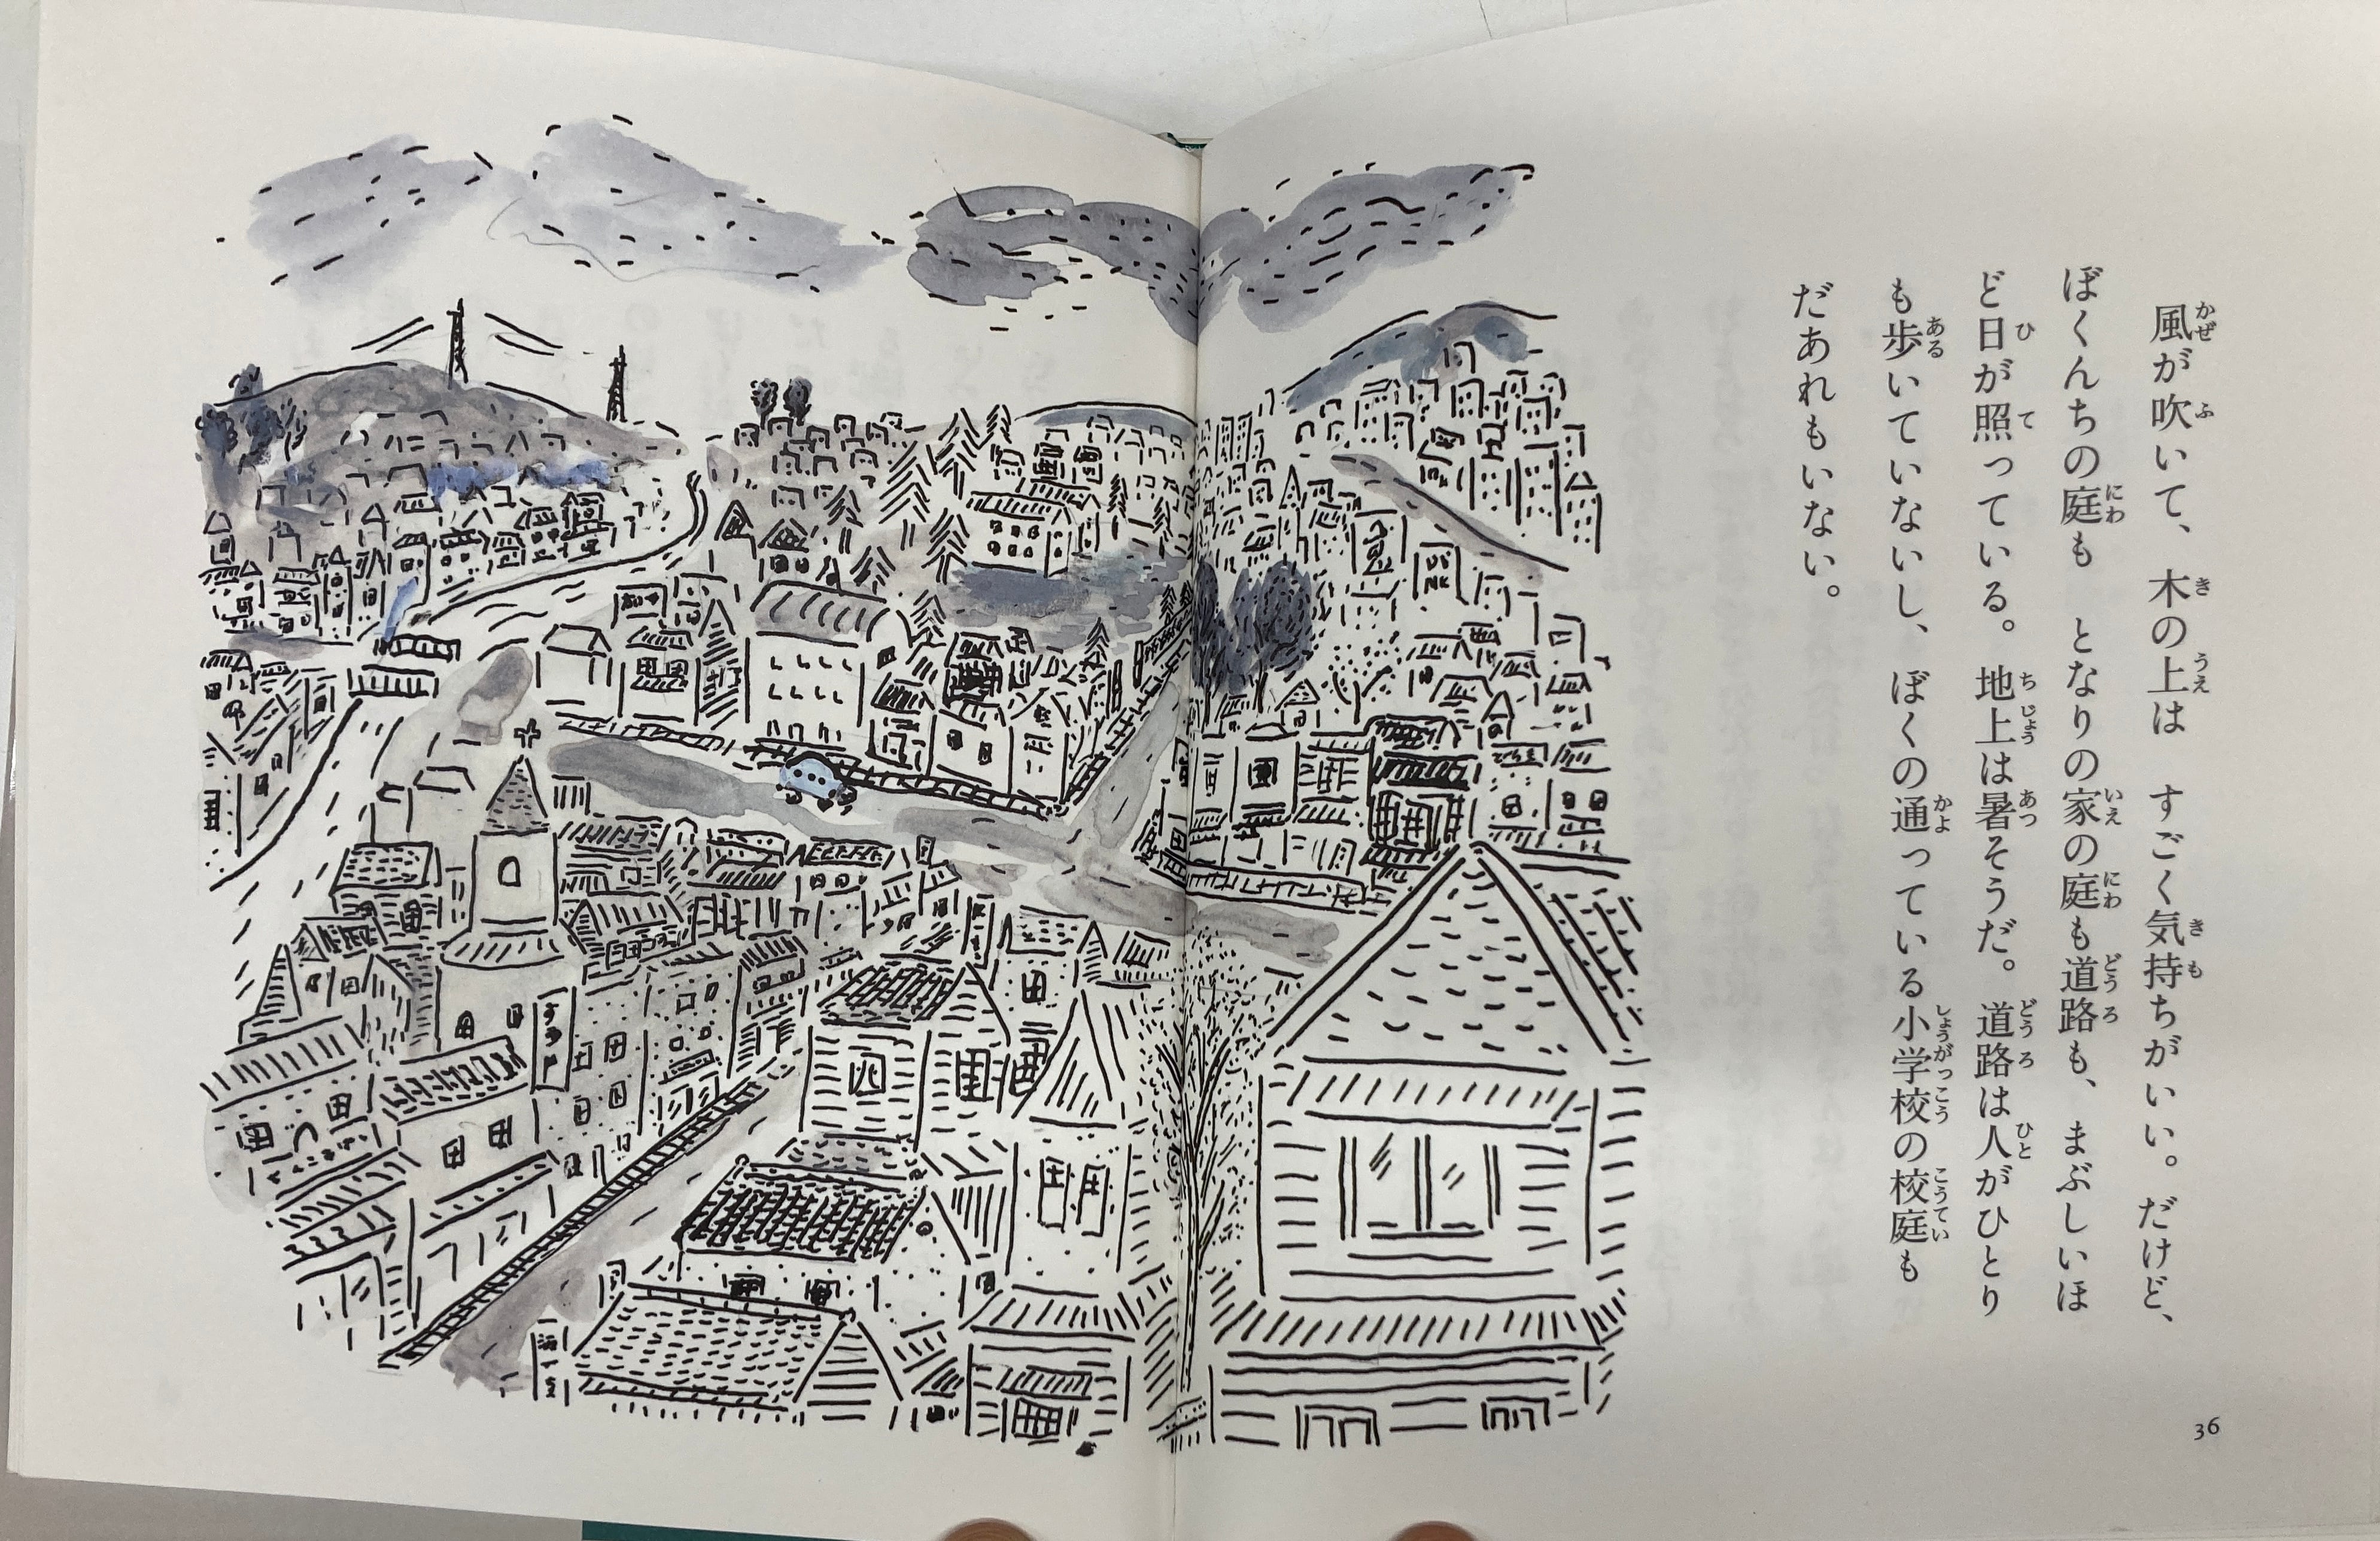 風が吹いて、木の上は　すごく気持ちがいい。だけど、
ぼくんちの庭も　となりの家の庭も道路も、まぶしいほ
ど日が照っている。地上は暑そうだ。道路は人がひとり
も歩いていないし、ぼくの通っている小学校の校庭も
だあれもいない。
36